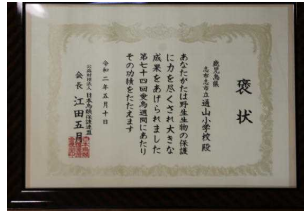 褒状
鹿児島県
志布志市立通山小学校殿
あなたがたは野生生物の保護
に力を尽くされ大きな
成果をあげられました
第七十四回愛鳥週間にあたり
その功績をたたえます
令和二年五月十日
公益財団法人日本鳥類保護連盟
会長 江田五月